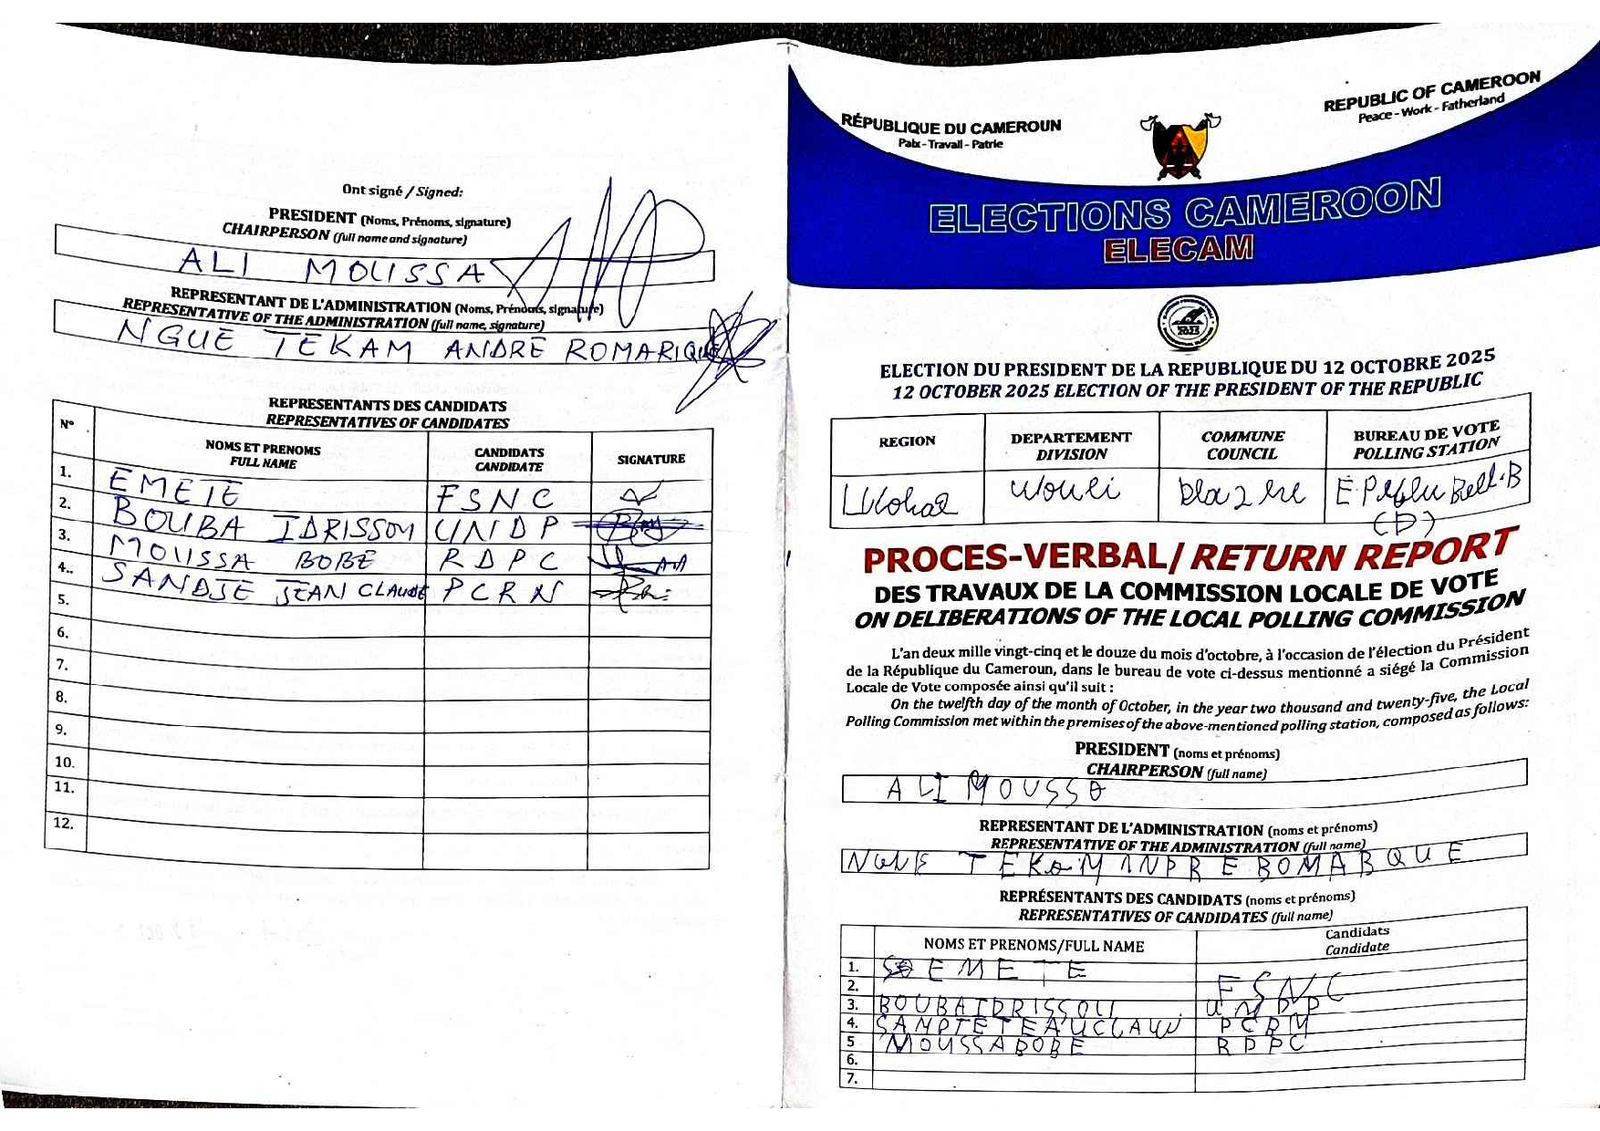 Ont signé / Signed:
PRESIDENT (Noms, Prénoms, signature)
CHAIRPERSON (full name and signature)
ALI MOUSSA
REPRESENTANT DE L'ADMINISTRATION (Noms, Prénoms, signature)
REPRESENTATIVE OF THE ADMINISTRATION (full name, signature)
NGUE TEKAM ANDRE ROMARIQUE
REPRESENTANTS DES CANDIDATS
REPRESENTATIVES OF CANDIDATES
N° NOMS ET PRENOMS CANDIDATS SIGNATURE
FULL NAME CANDIDATE
1. EMETE FSNC
2. BOUBA IDRISSOU UNDP
3. MOUSSA BOBE RDPC
4.. SANDJE JEAN CLAUDE PCRN
5.
6.
7.
8.
9.
10.
11.
12.
RÉPUBLIQUE DU CAMEROUN
Paix - Travail - Patrie
REPUBLIC OF CAMEROON
Peace - Work - Fatherland
ELECTIONS CAMEROON
ELECAM
ELECTION DU PRESIDENT DE LA REPUBLIQUE DU 12 OCTOBRE 2025
12 OCTOBER 2025 ELECTION OF THE PRESIDENT OF THE REPUBLIC
REGION DEPARTEMENT COMMUNE BUREAU DE VOTE
DIVISION COUNCIL POLLING STATION
Wouri E.P Bell.B
(D)
PROCES-VERBAL/ RETURN REPORT
DES TRAVAUX DE LA COMMISSION LOCALE DE VOTE
ON DELIBERATIONS OF THE LOCAL POLLING COMMISSION
L'an deux mille vingt-cinq et le douze du mois d'octobre, à l'occasion de l'élection du Président
de la République du Cameroun, dans le bureau de vote ci-dessus mentionné a siégé la Commission
Locale de Vote composée ainsi qu'il suit :
On the twelfth day of the month of October, in the year two thousand and twenty-five, the Local
Polling Commission met within the premises of the above-mentioned polling station, composed as follows:
PRESIDENT (noms et prénoms)
CHAIRPERSON (full name)
ALI MOUSSA
REPRESENTANT DE L'ADMINISTRATION (noms et prénoms)
REPRESENTATIVE OF THE ADMINISTRATION (full name)
TEKAM
REPRÉSENTANTS DES CANDIDATS (noms et prénoms)
REPRESENTATIVES OF CANDIDATES (full name)
NOMS ET PRENOMS/FULL NAME Candidats
Candidate
1. EMETE
2. FSNC
3. BOUBA IDRISSOU UNDP
4.
5 MOUSSA BOBE RDPC
6.
7.